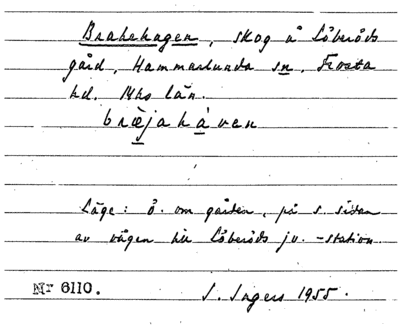 Brahehagen, skog å Löberöds
gård, Hammarlunda sn, Frosta
hd. Mhs län.
bræjahàven
Läge: ö. om gården, på s. sidan
av vägen till Löberöds jv.-station
Nr 6110.
S. Ingers 1955.